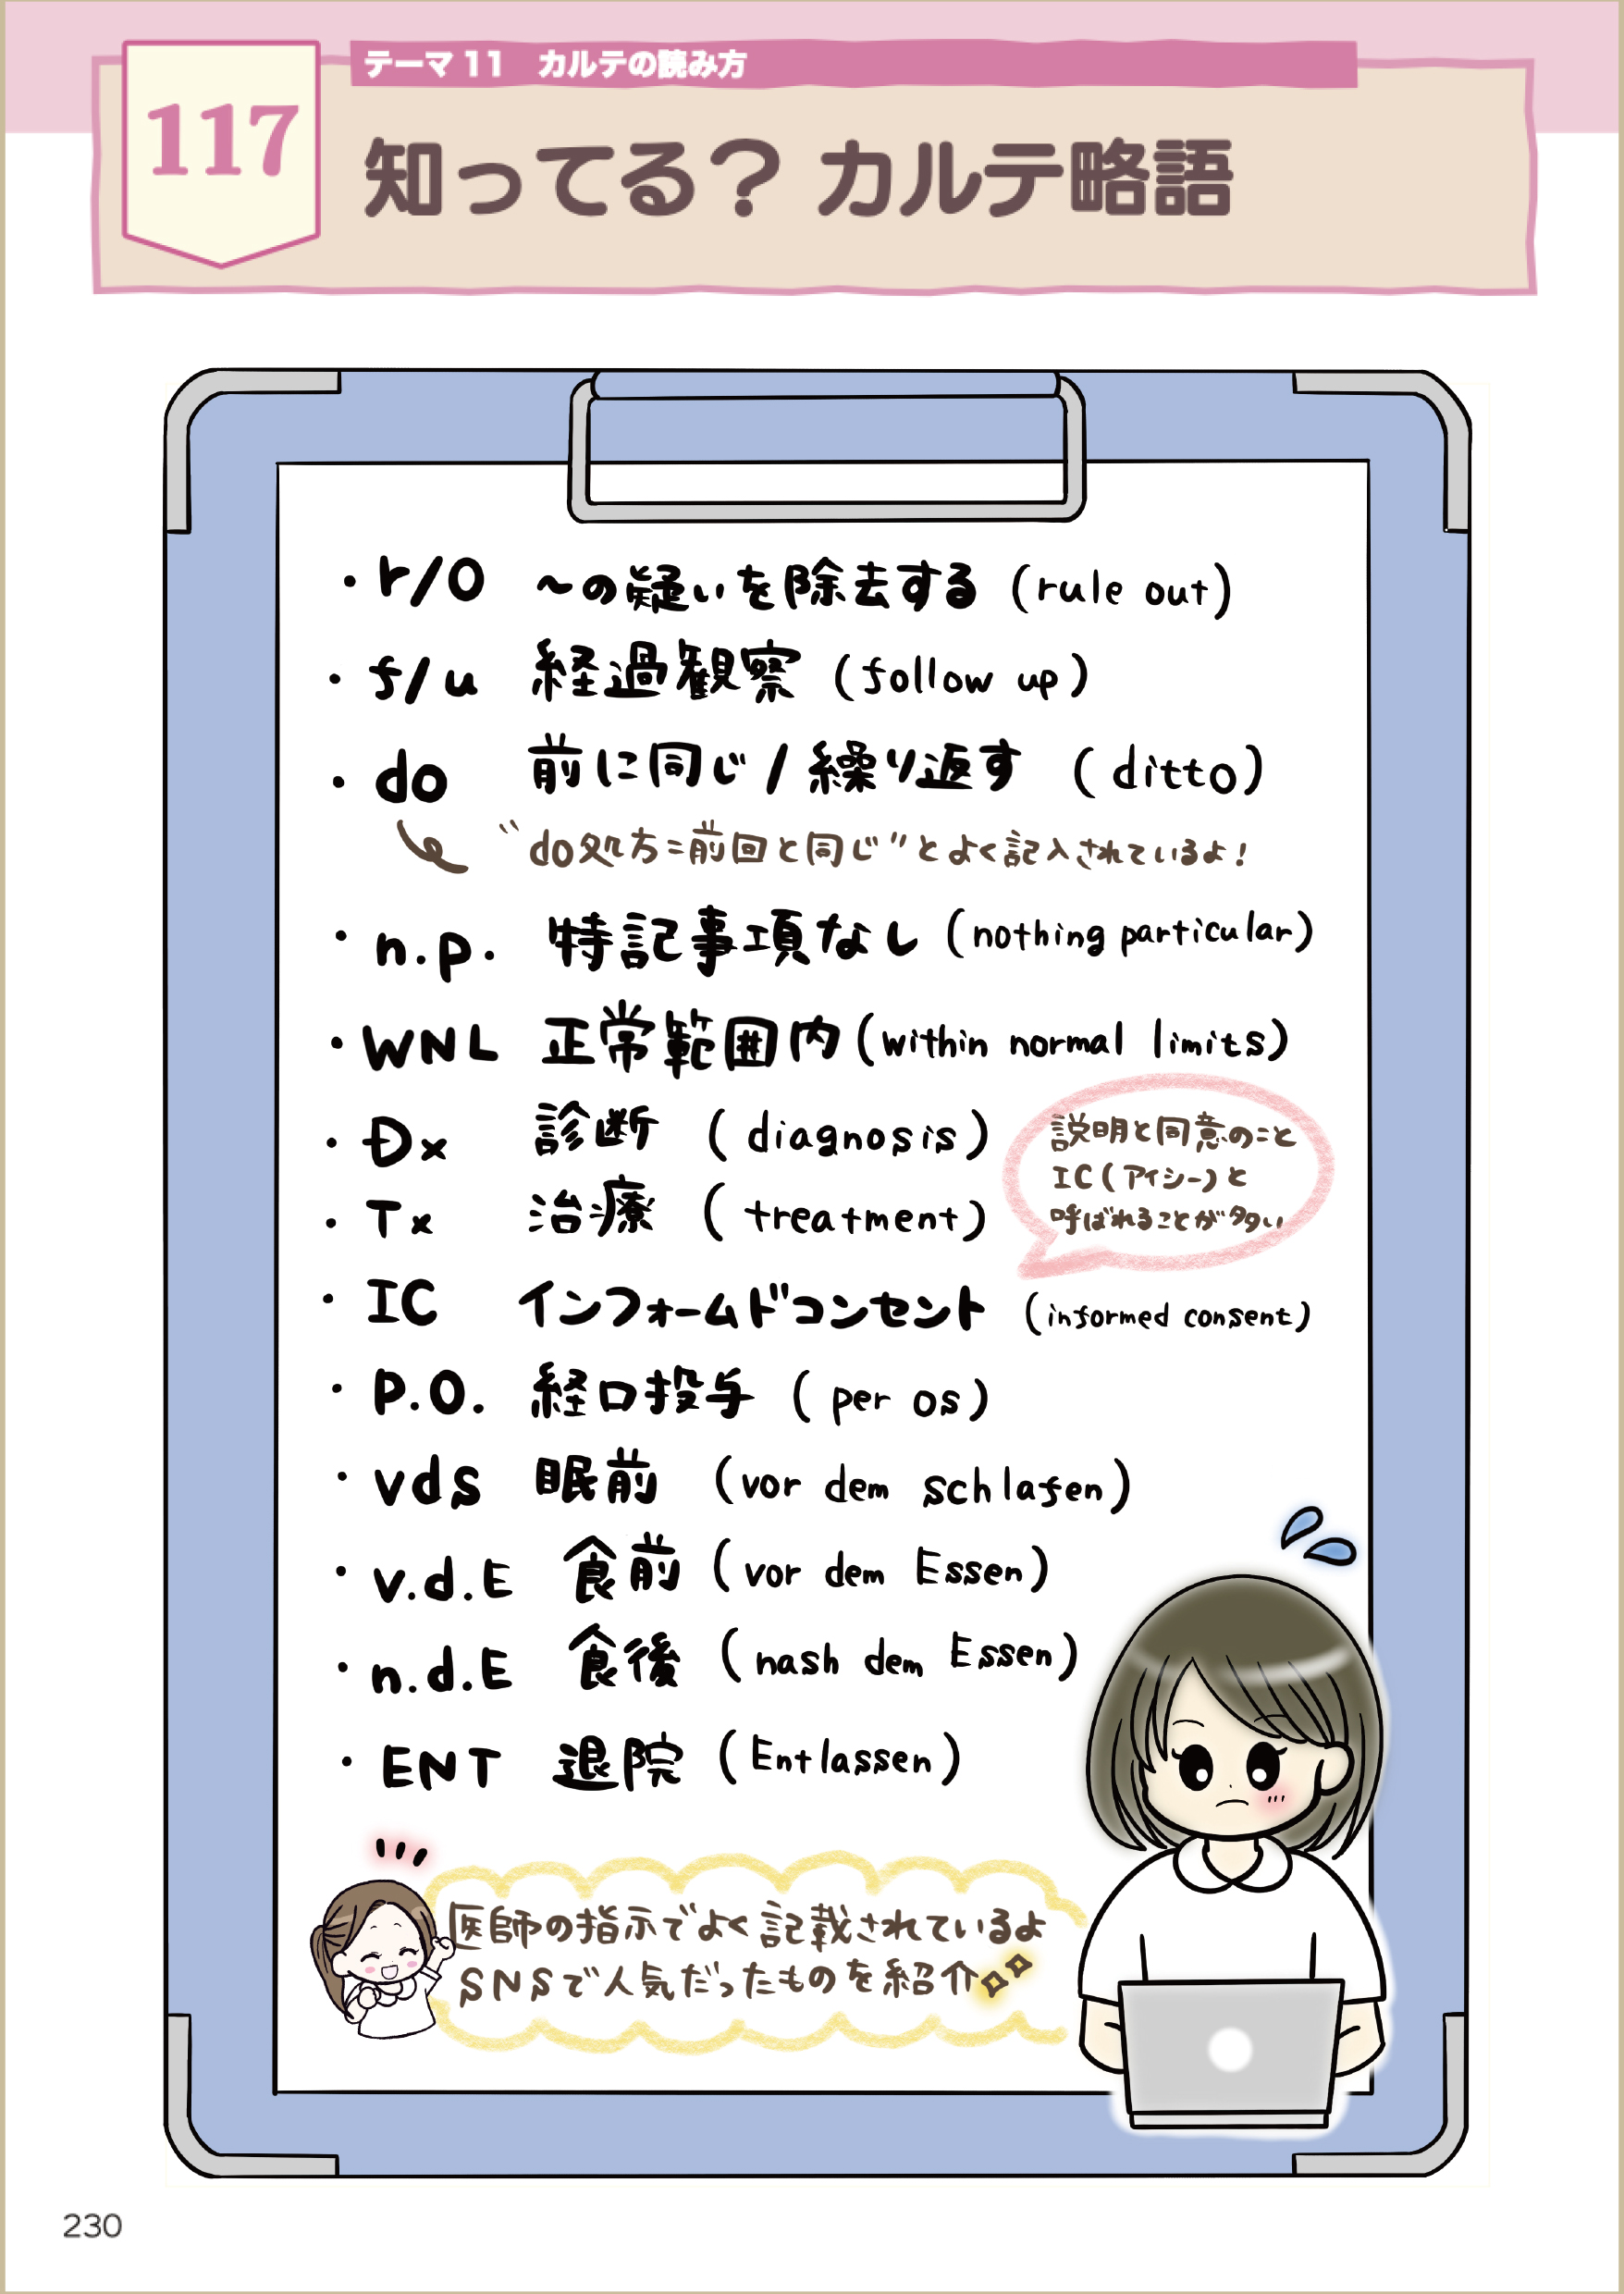 テーマ 11　カルテの読み方
117
知ってる？ カルテ略語
・r/o 〜の疑いを除去する (rule out)
・f/u 経過観察 (follow up)
・do 前に同じ / 繰り返す (ditto)
"do処方=前回と同じ"とよく記入されているよ！
・n.p. 特記事項なし (nothing particular)
・WNL 正常範囲内 (within normal limits)
・Dx 診断 (diagnosis)
・Tx 治療 (treatment)
説明と同意のこと
IC(アイシー)と
呼ばれることが多い
・IC インフォームドコンセント (informed consent)
・P.O. 経口投与 (per os)
・vds 眠前 (vor dem schlafen)
・v.d.E 食前 (vor dem Essen)
・n.d.E 食後 (nash dem Essen)
・ENT 退院 (Entlassen)
医師の指示でよく記載されているよ
SNSで人気だったものを紹介
230